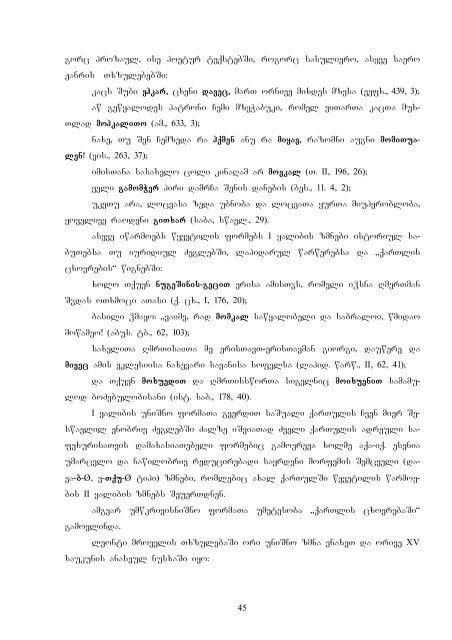 გორც პროზაულ, ისე პოეტურ ტექსტებში, როგორც სასულიერო, ასევე საერო
ჟანრის თხზულებებში:
კაცს შუბი ვჰკარ, ცხენი დავეც, მართ ორნივე მიხდეს მზესა (ვეფხ., 439, 3);
აწ გეწყალოდეს პატრონი ჩემი მზეჭაბუკი, რომელ ვითართა კაცთა მუხ-
თლად მოჰკალითო (ამ., 633, 3);
ნახე, თუ შენ ჩემზედა რა ჰქმენ ანუ რა მიყავ, რაზომნი აუგნი მომითუა-
ლენ! (ვის., 263, 37);
იმისთანა სასახელო ცოლი კინაღამ არ მოვკალ (თ. II, 196, 26);
ყელი გამომჭერ პირი დამრჩა შენის დანების (ბეს., 11. 4, 2);
უკეთუ არა, ლოცვასა ზედა უბნობა და ლოცვათა ყურთა მიუპყრობლობა,
ყოველივე რაოდენი გითხარ (საბა, სწავლ., 29).
ასევე იწარმოებს წყვეტილის ფორმებს I ყალიბის ზმნები ისტორიულ სა-
ბუთებსა თუ იურიდიულ ძეგლებში, ლაპიდარულ წარწერებსა და „ქართლის
ცხოვრების“ წიგნებში:
ხოლო თქუენ ნუგეშინის-გეცით ერისა ამისთჳს, რომელი იჴსნა ღმერთმან
შჳდას ოთხმოცი ათასი (ქ. ცხ., I, 176, 20);
ბასილი ჴმაყო: „ვაიმე, რად მომკალ საწყალობელი და საბრალოჲ, წმიდაო
მოწამეო! (აბუს. ტბ., 62, 103);
სახელითა ღმრთისაჲთა მე ერისთავთ-ერისთავმან გიორგი, დაუწერე და
მივეც ამის ეკლესიისა ნახევარი სავანისა სოფელსა (ლაპიდ. წარწ., II, 62, 41);
და თქუენ მოხუედით და ღმრთისსწორთა სიგელნიც მოიხუენით სამამუ-
ლოდ ბოძებულობისანი (ისტ. საბ., 178, 40).
I ყალიბის უნიშნო ფორმათა გვერდით საშუალი ქართულის ჩვენ მიერ შე-
სწავლილ ენობრივ ძეგლებში ძალზე იშვიათად ძველი ქართულის ადრეული სა-
ფეხურისათვის დამახასიათებელი ფორმებიც გამოერევა ხოლმე აქა-იქ. ესენია
უმარცვლო და ნაწილობრივ რედუცირებადი საყრდენი მორფემის შემცველი (და-
ვა-ბ-Ø, ვ-თქუ-Ø ტიპი) ზმნები, რომლებიც ახალ ქართულში წყვეტილის წარმოე-
ბის II ყალიბის ზმნებს შეუერთდნენ.
ამგვარ უმწკრივისნიშნო ფორმათა უმეტესობა „ქართლის ცხოვრებაში“
გამოვლინდა.
ლეონტი მროველის თხზულებაში ორი უნიშნო ზმნა ვნახეთ და ორივე XV
საუკუნის ანასეულ ნუსხაში იყო:
45